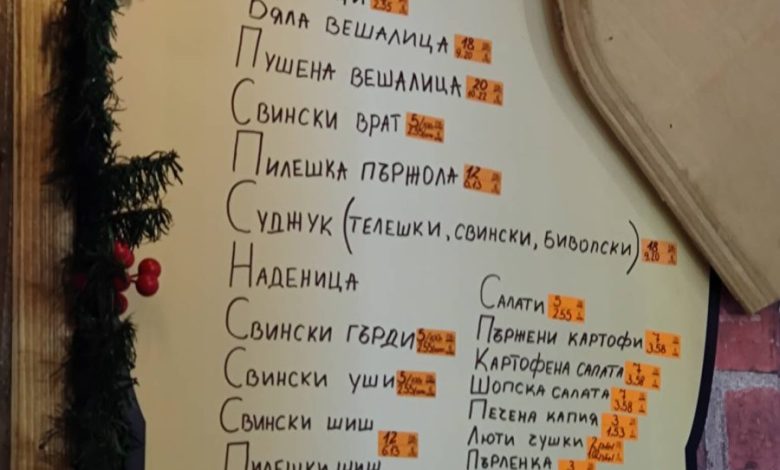 2.55
Бяла вешалица 18 9.20
Пушена вешалица 20 10.22
Свински врат 5/100
Пилешка пържола 12 6.13
Суджук (телешки, свински, биволски) 18 9.20
Наденица
Свински гърди 5/100
Свински уши 5/100
Свински шиш
12 6.13
Пилешки шиш
Салати 5 2.55
Пържени картофи 7 3.58
Картофена салата 7 3.58
Шопска салата 7 3.58
Печена капия 3 1.53
Люти чушки
Пърленка 3